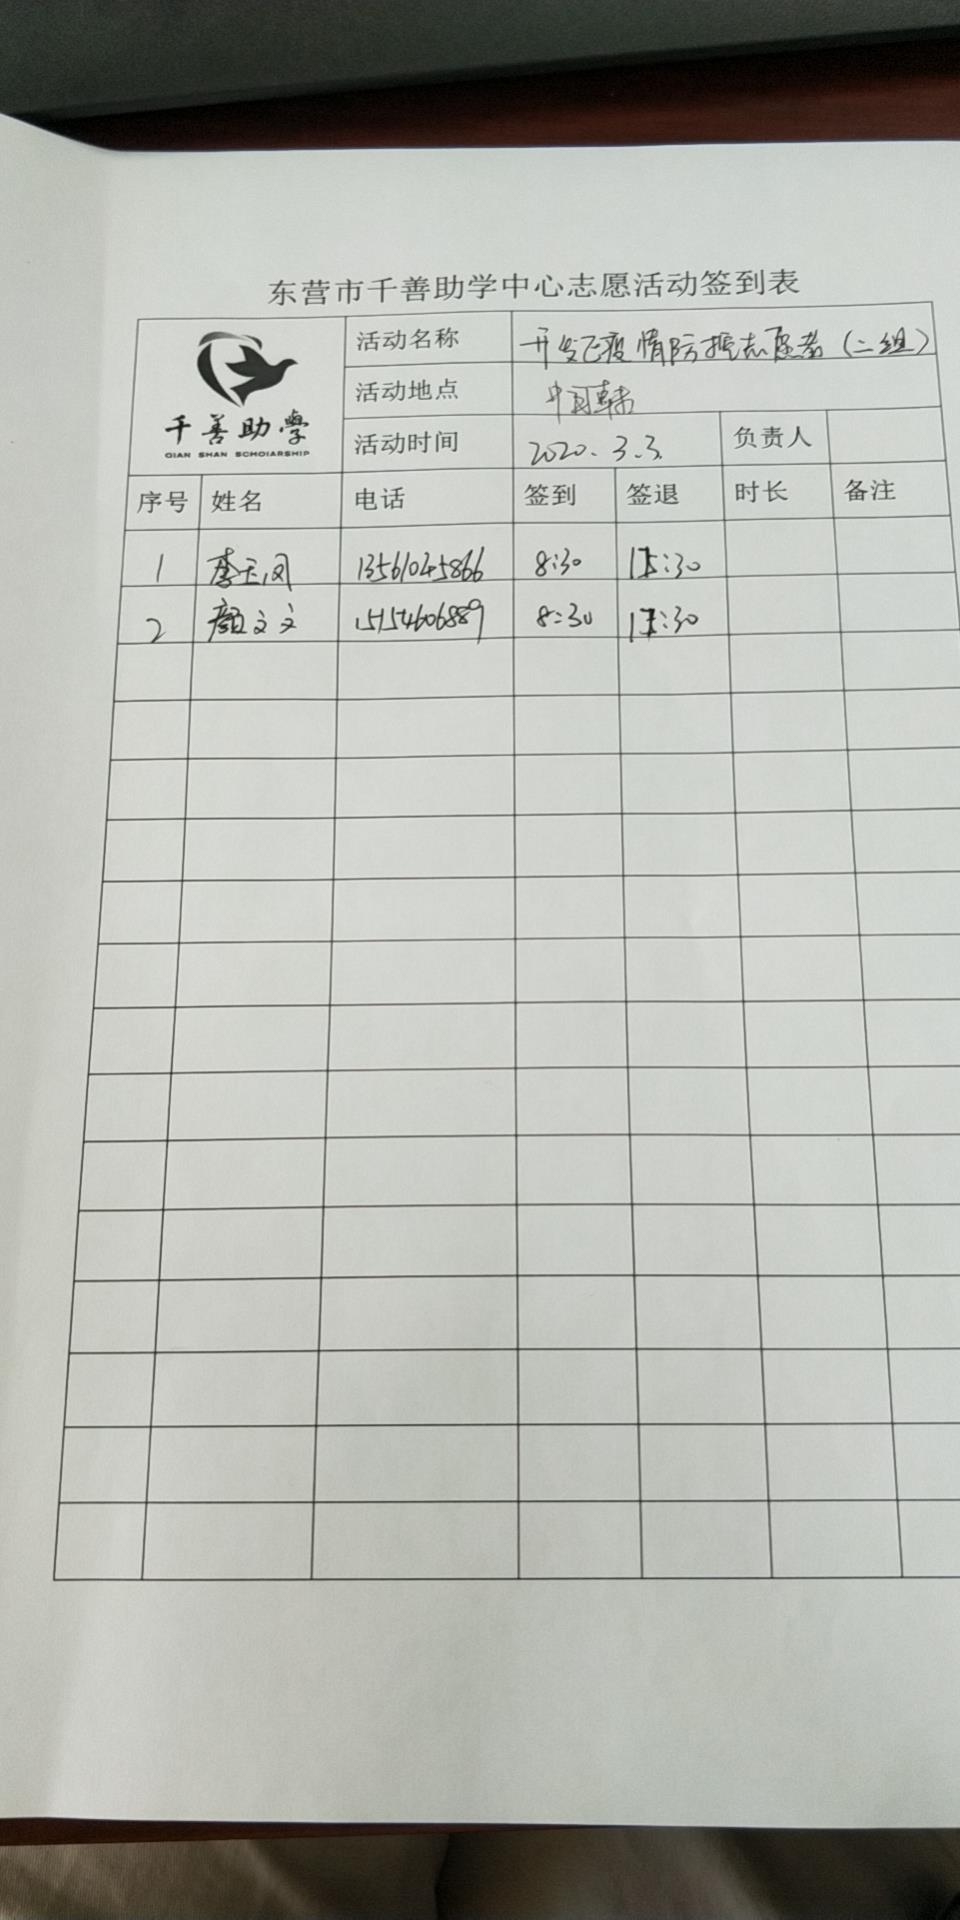 东营市千善助学中心志愿活动签到表
千善助學
QIAN SHAN SCHOIARSHIP
活动名称 开发区疫情防控志愿者(二组)
活动地点 中国
活动时间 2020.3.3. 负责人
序号 姓名 电话 签到 签退 时长 备注
1 李玉凤 13561045866 8:30 :30
2 颜文文 15154606889 8:30 :30